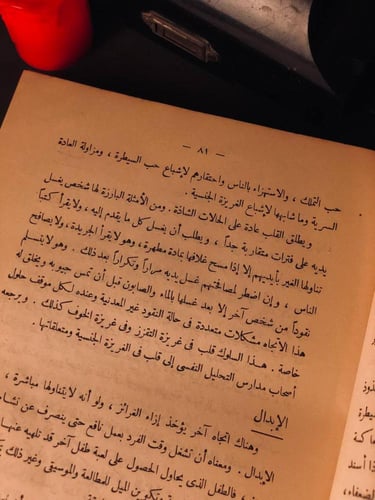 — ٨١ —
حب التملك ، والاستهزاء بالناس واحتقارهم لإشباع حب السيطرة ، ومزاولة العادة
السرية وما شابهها لإشباع الغريزة الجنسية .
ويطلق القلب عادة على الحالات الشاذة . ومن الأمثلة البارزة لها شخص يغسل
يديه على فترات متقاربة جداً ، ويطلب أن يغسل كل ما يقدم إليه ، ولا يقرأ كتباً
تناولها الغير بأيديهم إلا إذا مسح غلافها بمادة مطهرة ، وهو لا يقرأ الجريدة ، ولا يصافح
الناس ، وإن اضطر لمصافحتهم غسل يديه مراراً وتكراراً بعد ذلك . وهو لا يتسلم
نقوداً من شخص آخر إلا بعد غسلها بالماء والصابون قبل أن تمس جيوبه ويخلق له
هذا الاتجاه مشكلات متعددة في حالة النقود غير المدنية وعنده لكل موقف حلول
خاصة . هذا السلوك قلب في غريزة التقزز وفي غريزة الخوف كذلك . ويرجعه
أصحاب مدارس التحليل النفسي إلى قلب في الغريزة الجنسية ومتعلقاتها .
الإبدال
وهناك اتجاه آخر يؤخذ إزاء الغرائز ، ولو أنه لا يتناولها مباشرة ،
الإبدال . ومعناه أن تشغل وقت الفرد بعمل نافع حتى ينصرف عن
فالطفل الذي يحاول الحصول على لعبة طفل آخر قد تلهيه عنها
الميل للمطالعة والموسيقى وغير ذلك